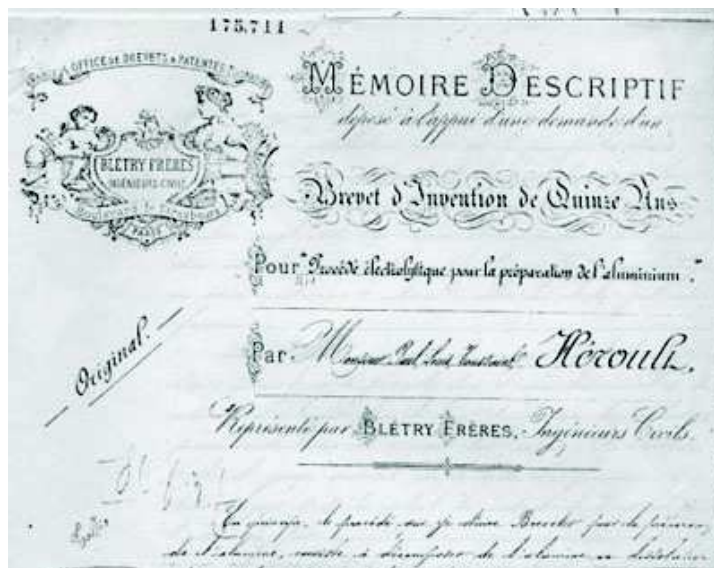 175.711
OFFICE DE BREVETS & PATENTES
BLÉTRY FRÈRES
INGÉNIEURS-CIVILS
Boulevard de Strasbourg
PARIS
MÉMOIRE DESCRIPTIF
déposé à l'appui d'une demande d'un
Brevet d'Invention de Quinze Ans
Pour "Procédé électrolytique pour la préparation de l'aluminium."
Original.
Par Monsieur Paul Louis Toussaint Héroult.
Représenté par BLÉTRY FRÈRES, Ingénieurs Civils.
le procédé que je désire Breveter pour la
de l'alumine, consiste à décomposer de l'alumine en dissolution